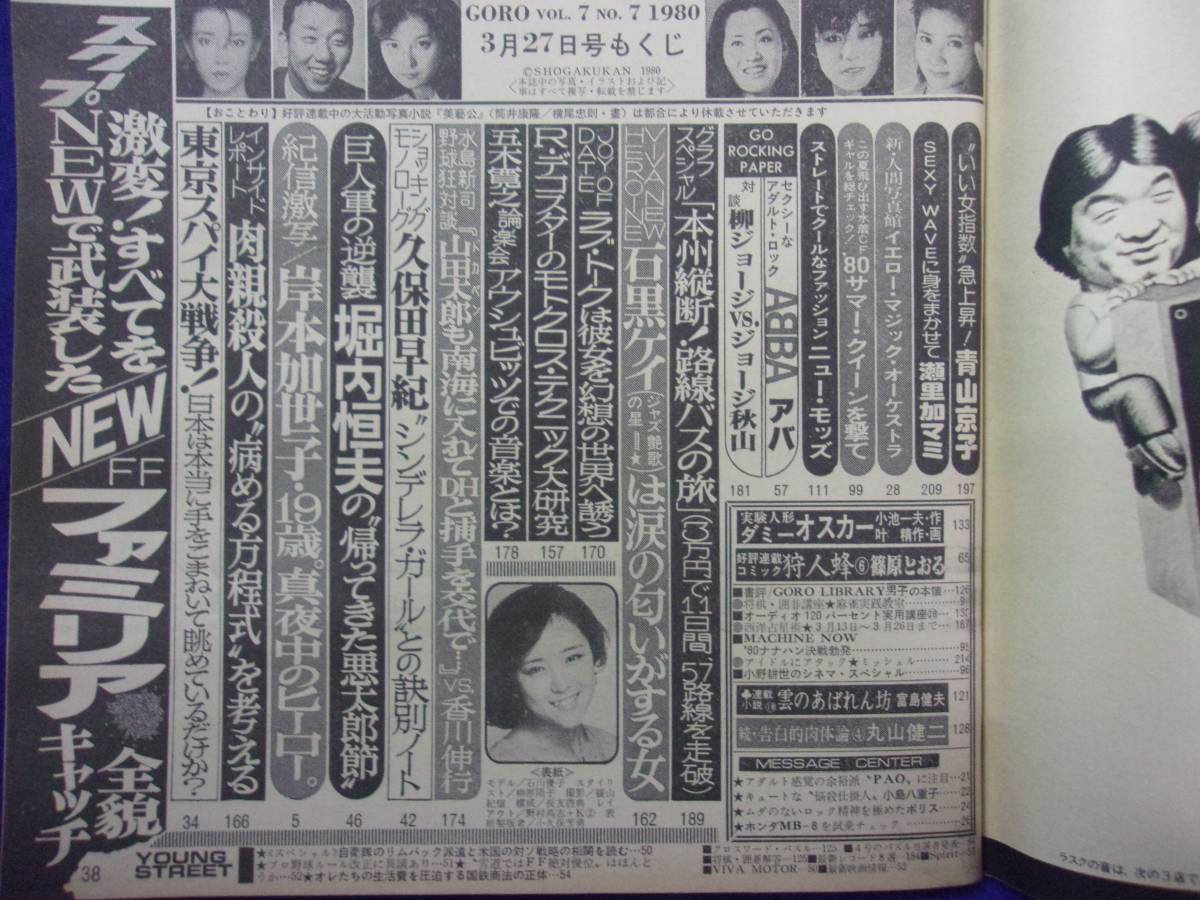 GORO VOL. 7 NO. 7 1980
3月27日号もくじ
©SHOGAKUKAN 1980
<本誌中の写真・イラストおよび記
事はすべて複写・転載を禁じます>
【おことわり】好評連載中の大活動写真小説『美藝公』(筒井康隆/横尾忠則・畫)は都合により休載させていただきます
"いい女指数"急上昇!青山京子
197
SEXY WAVEに身をまかせて 瀬里加マミ
209
新・人間写真館 イエロー・マジック・オーケストラ
28
この夏飛び出す水着CFギャルを総チェック!'80サマー・クイーンを撃て
99
ストレートでクールなファッション ニュー・モッズ
111
GO ROCKING PAPER
セクシーなアダルト・ロック ABBA アバ
57
対談 柳ジョージvs.ジョージ秋山
181
グラフスペシャル「本州縦断!路線バスの旅」(3万円で11日間、57路線を走破)
189
VIVA NEW HEROINE 石黒ケイ(ジャズ艶歌の星―★)は涙の匂いがする女
162
JOY OF DATE ラブ・トークは彼女を幻想の世界へ誘う
170
R・デコスターのモトクロス・テクニック大研究
157
五木寛之論楽会 アウシュビッツでの音楽とは?
178
水島新司野球狂対談『山田太郎も南海に入れてDHと捕手を交代で…』vs.香川伸行
174
ショッキングモノローグ 久保田早紀"シンデレラ・ガール"との訣別ノート
42
巨人軍の逆襲 堀内恒夫の"帰ってきた悪太郎節"
46
紀信激写/岸本加世子・19歳。真夜中のヒーロー。
5
インサイドレポート 肉親殺人の"病める方程式"を考える
166
東京スパイ大戦争!日本は本当に手をこまねいて眺めているだけか?
34
スクープ 激変!すべてをNEWで武装した
NEW FF ファミリア 全貌キャッチ
38
実験人形 ダミーオスカー 小池一夫・作 叶精作・画 133
好評連載コミック 狩人蜂⑥ 篠原とおる 65
■書評/GORO LIBRARY男子の本懐…126
●将棋・囲碁講座★麻雀実践教室
■オーディオ120パーセント実用講座…130
●西洋占星術★3月13日〜3月26日まで…187
■MACHINE NOW
'80ナナハン決戦勃発……95
●アイドルにアタック★ミッシェル……214
■小野耕世のシネマ・スペシャル……96
連載小説 雲のあばれん坊 富島健夫 121
続・告白的肉体論④ 丸山健二 128
MESSAGE CENTER
★アダルト感覚の余裕派"PAO"に注目…21
★キュートな"悩殺仕掛人"小島八重子…22
★ムダのないロック精神を極めたポリス…24
★ホンダMB-8を試乗チェック
<表紙>
モデル/石川優子 スタイリ
YOUNG STREET
★〈スペシャル〉自衛隊のリムパック派遣と米国の対ソ戦略の相関を読む…50
★プロ野球ルール改正に異議あり…51★"雪道ではFF絶対優位"はほんと
うか…52★オレたちの生活費を圧迫する国鉄商法の正体…54
■クロスワード・パズル…125
■将棋・囲碁解答…125■最新レコード8選…184
■VIVA MOTOR…80■最新映画情報…52
ラスクの音は、次の3店で